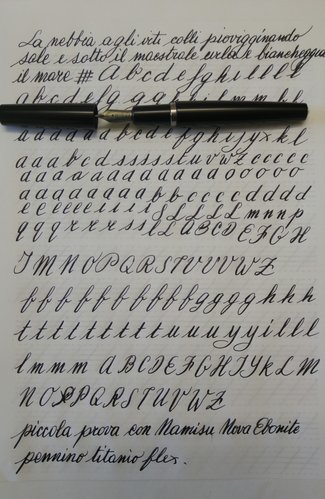 La nebbia agli irti colli piovigginando
sale e sotto il maestrale urla e biancheggia
il mare # A b c d e f g h i l l l l
a b c d e f g g g
a a a a a a b c d e f g h i j y x k l
a a a b c d s s s s s t u v w z c c c c c
a a a a a a a a a a a a o o o o o
a a a a a a a b b c c c c d d d d
q q q r r r s s l L A B C D E F G H
I M N O P Q R S T U V V W Z
f f f f f f f f f f g g g g h h h
t t t t t t t t t u u u y y i l l l
l m m m A B C D E F G H I J Y K L M
N O P P Q R S T U V W Z
piccola prova con Namisu Nova Ebonite
pennino titanio flex.